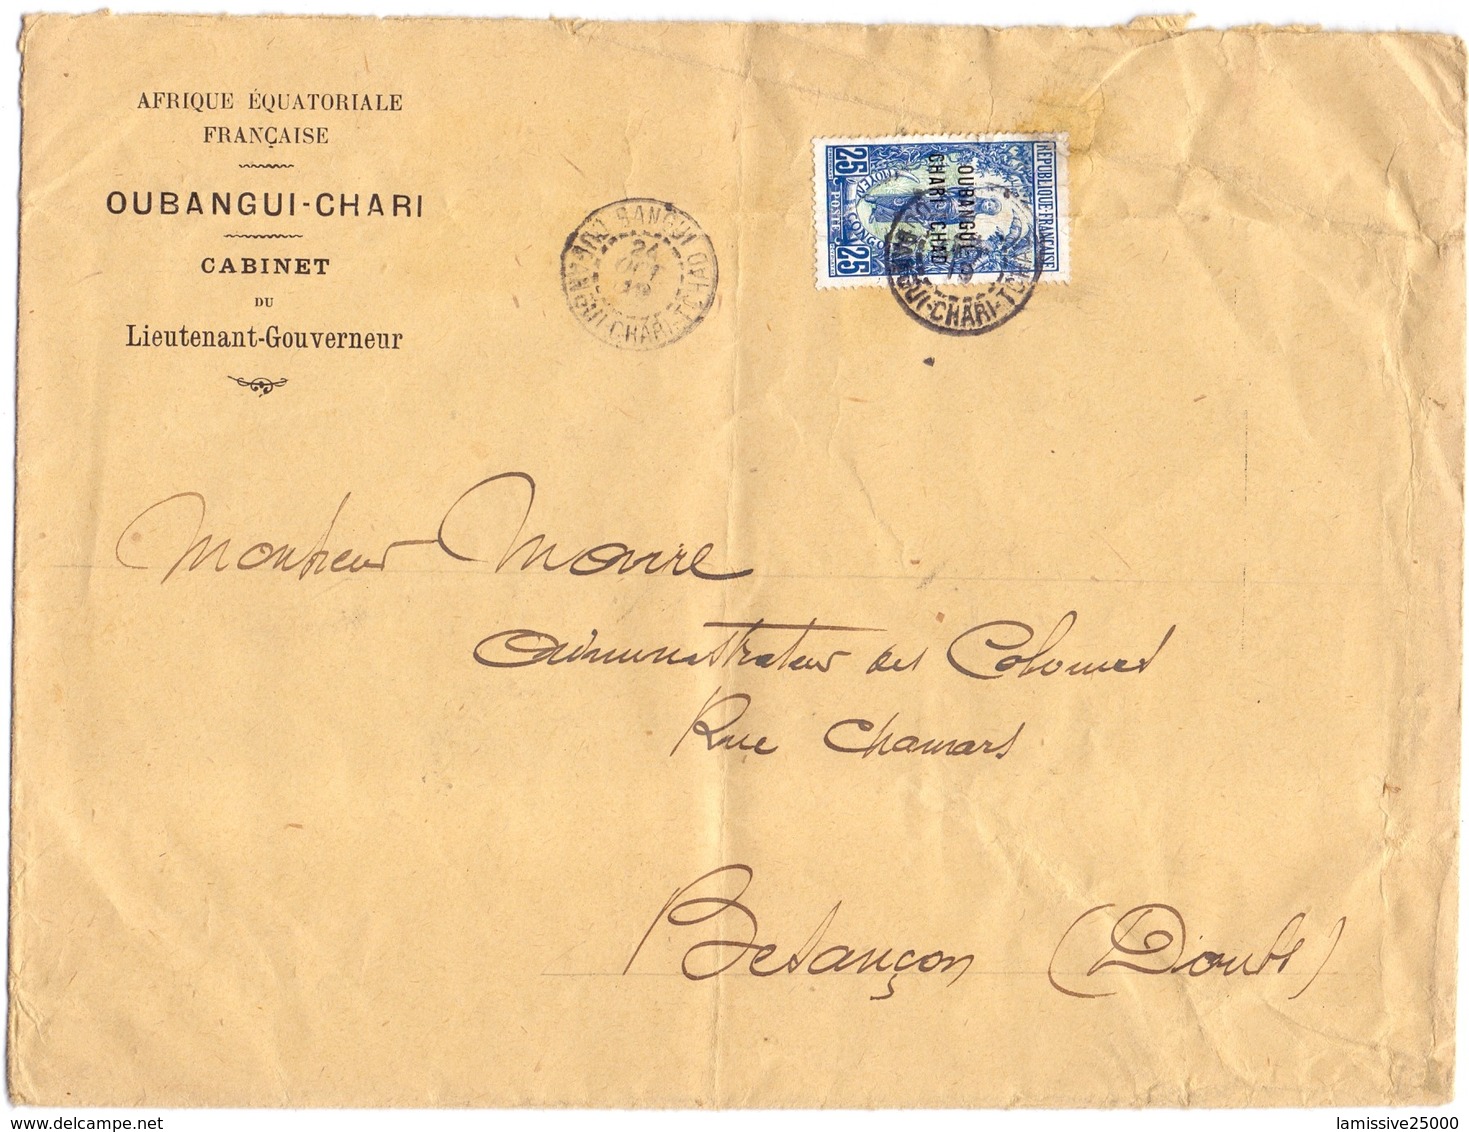 AFRIQUE ÉQUATORIALE
FRANÇAISE
OUBANGUI-CHARI
CABINET
DU
Lieutenant-Gouverneur
BANGUI
24
OCT
OUBANGUI-CHARI-TCHAD
RÉPUBLIQUE FRANÇAISE
OUBANGUI
CHARI-TCHAD
25
POSTE
MOYEN CONGO
25
BANGUI
OUBANGUI-CHARI-TCHAD
Monsieur Moure
Administrateur des Colonies
Rue Chamars
Besançon (Doubs)
delcampe.net
lamissive25000